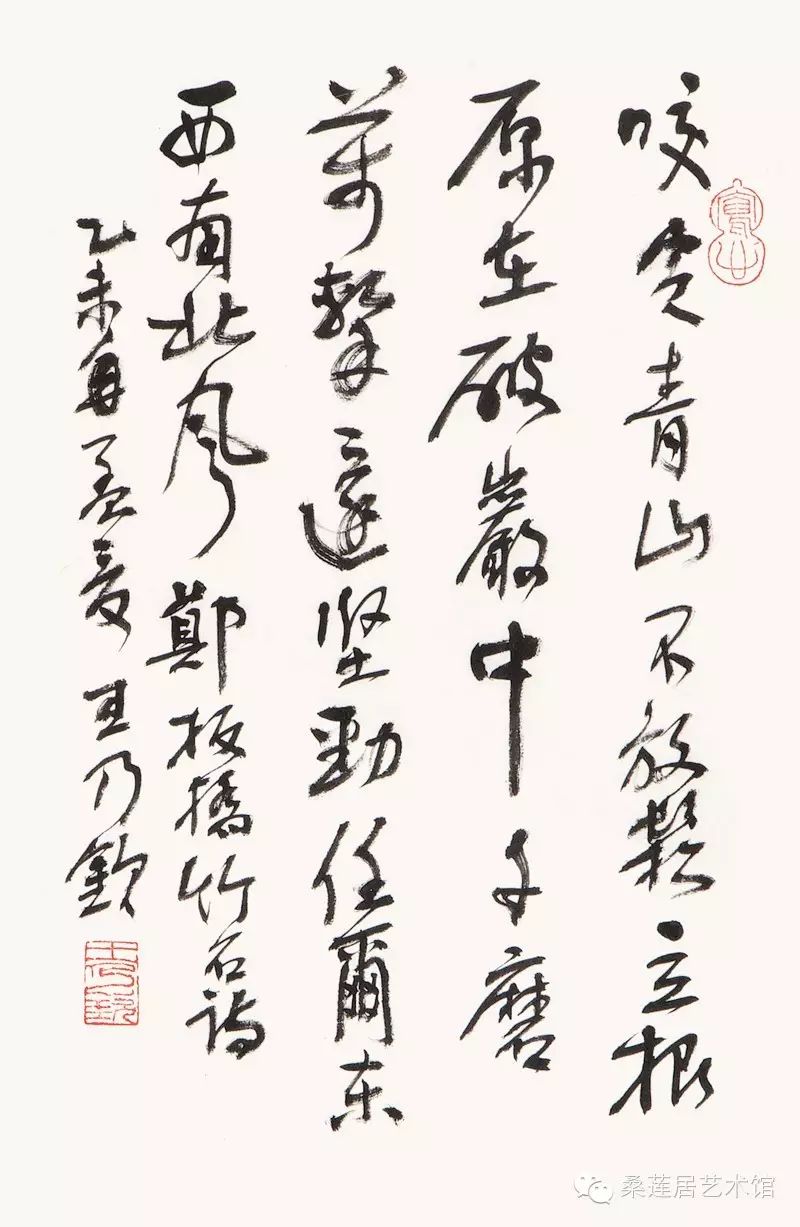 咬定青山不放鬆立根
原在破巖中千磨
萬擊還堅勁任爾東
西南北風 鄭板橋竹石詩
乙未年孟夏 王乃欽
桑莲居艺术馆